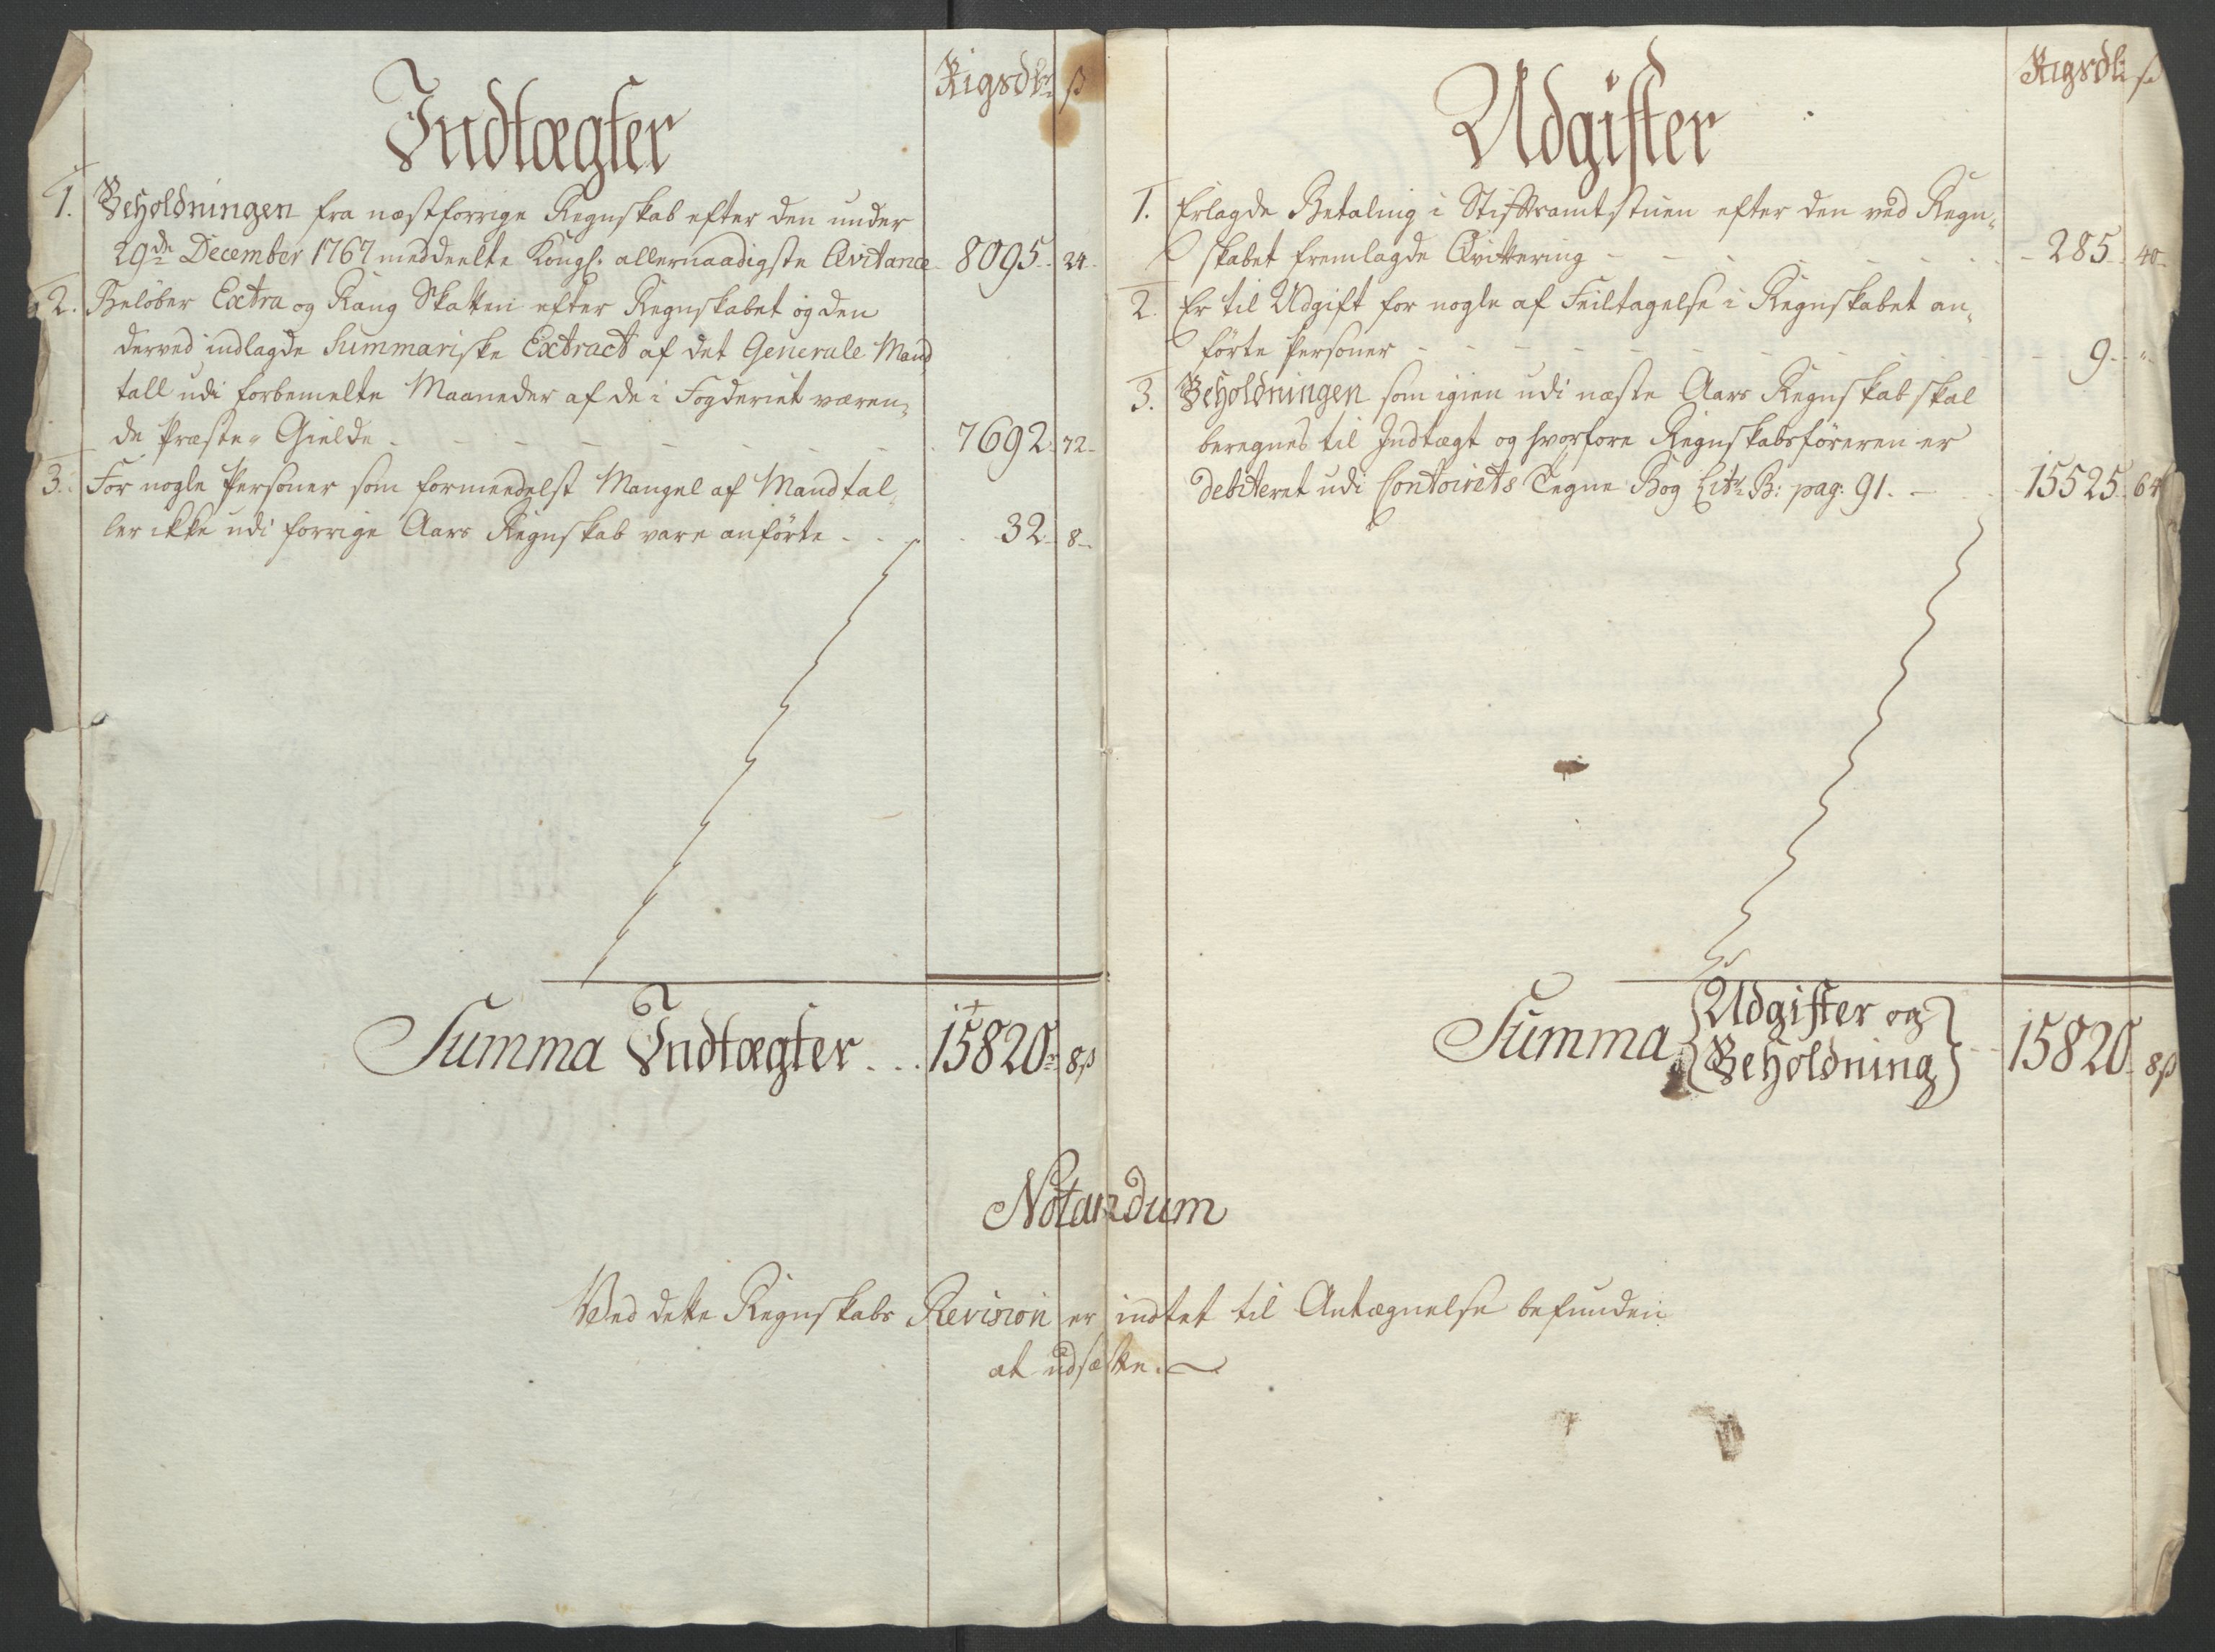 Indtægter
Rigsdlr ß
1. Beholdningen fra næstforrige Regnskab efter den under
29de December 1767 meddeelte Kongl. allernaadigste Qvitance 8095 24
2. Beløber Extra og Rang Skatten efter Regnskabet og den
derved indlagde Summariske Extract af det Generale Mand
tall udi forbemelte Maaneder af de i Fogderiet væren-
de Præste-Gielde 7692 72
3. For nogle Personer som formeedelst Mangel af Mandtal-
ler ikke udi forrige Aars Regnskab vare anførte 32 8
Summa Indtægter 15820 8ß
Udgifter
Rigsdlr ß
1. Erlagde Betaling i Stiftsamtstuen efter den ved Regn-
skabet fremlagde Qvittering 285 40
2. Er til Udgift for nogle af Feiltagelse i Regnskabet an-
førte Personer 9 "
3. Beholdningen som igien udi næste Aars Regnskab skal
beregnes til Indtægt og hvorfore Regnskabsføreren er
debiteret udi Contoirets Tegne Bog Litr. B: pag: 91. 15525 64
Summa {Udgifter og
Beholdning} 15820 8ß
Notandum
Ved dette Regnskabs Revision er indtet til Antægnelse befunden
at udsætte.